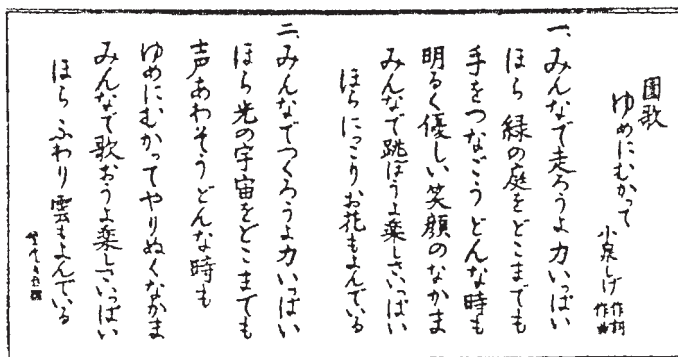 園歌
ゆめにむかって
小泉しげ 作詞 作曲
一、みんなで走ろうよ 力いっぱい
ほら 緑の庭をどこまでも
手をつなごう どんな時も
明るく優しい笑顔のなかま
みんなで跳ぼうよ楽しさいっぱい
ほら にっこりお花もよんでいる
二、みんなでつくろうよ力いっぱい
ほら光の宇宙をどこまでも
声あわそうどんな時も
ゆめにむかってやりぬくなかま
みんなで歌おうよ楽しさいっぱい
ほら ふわり雲もよんでいる